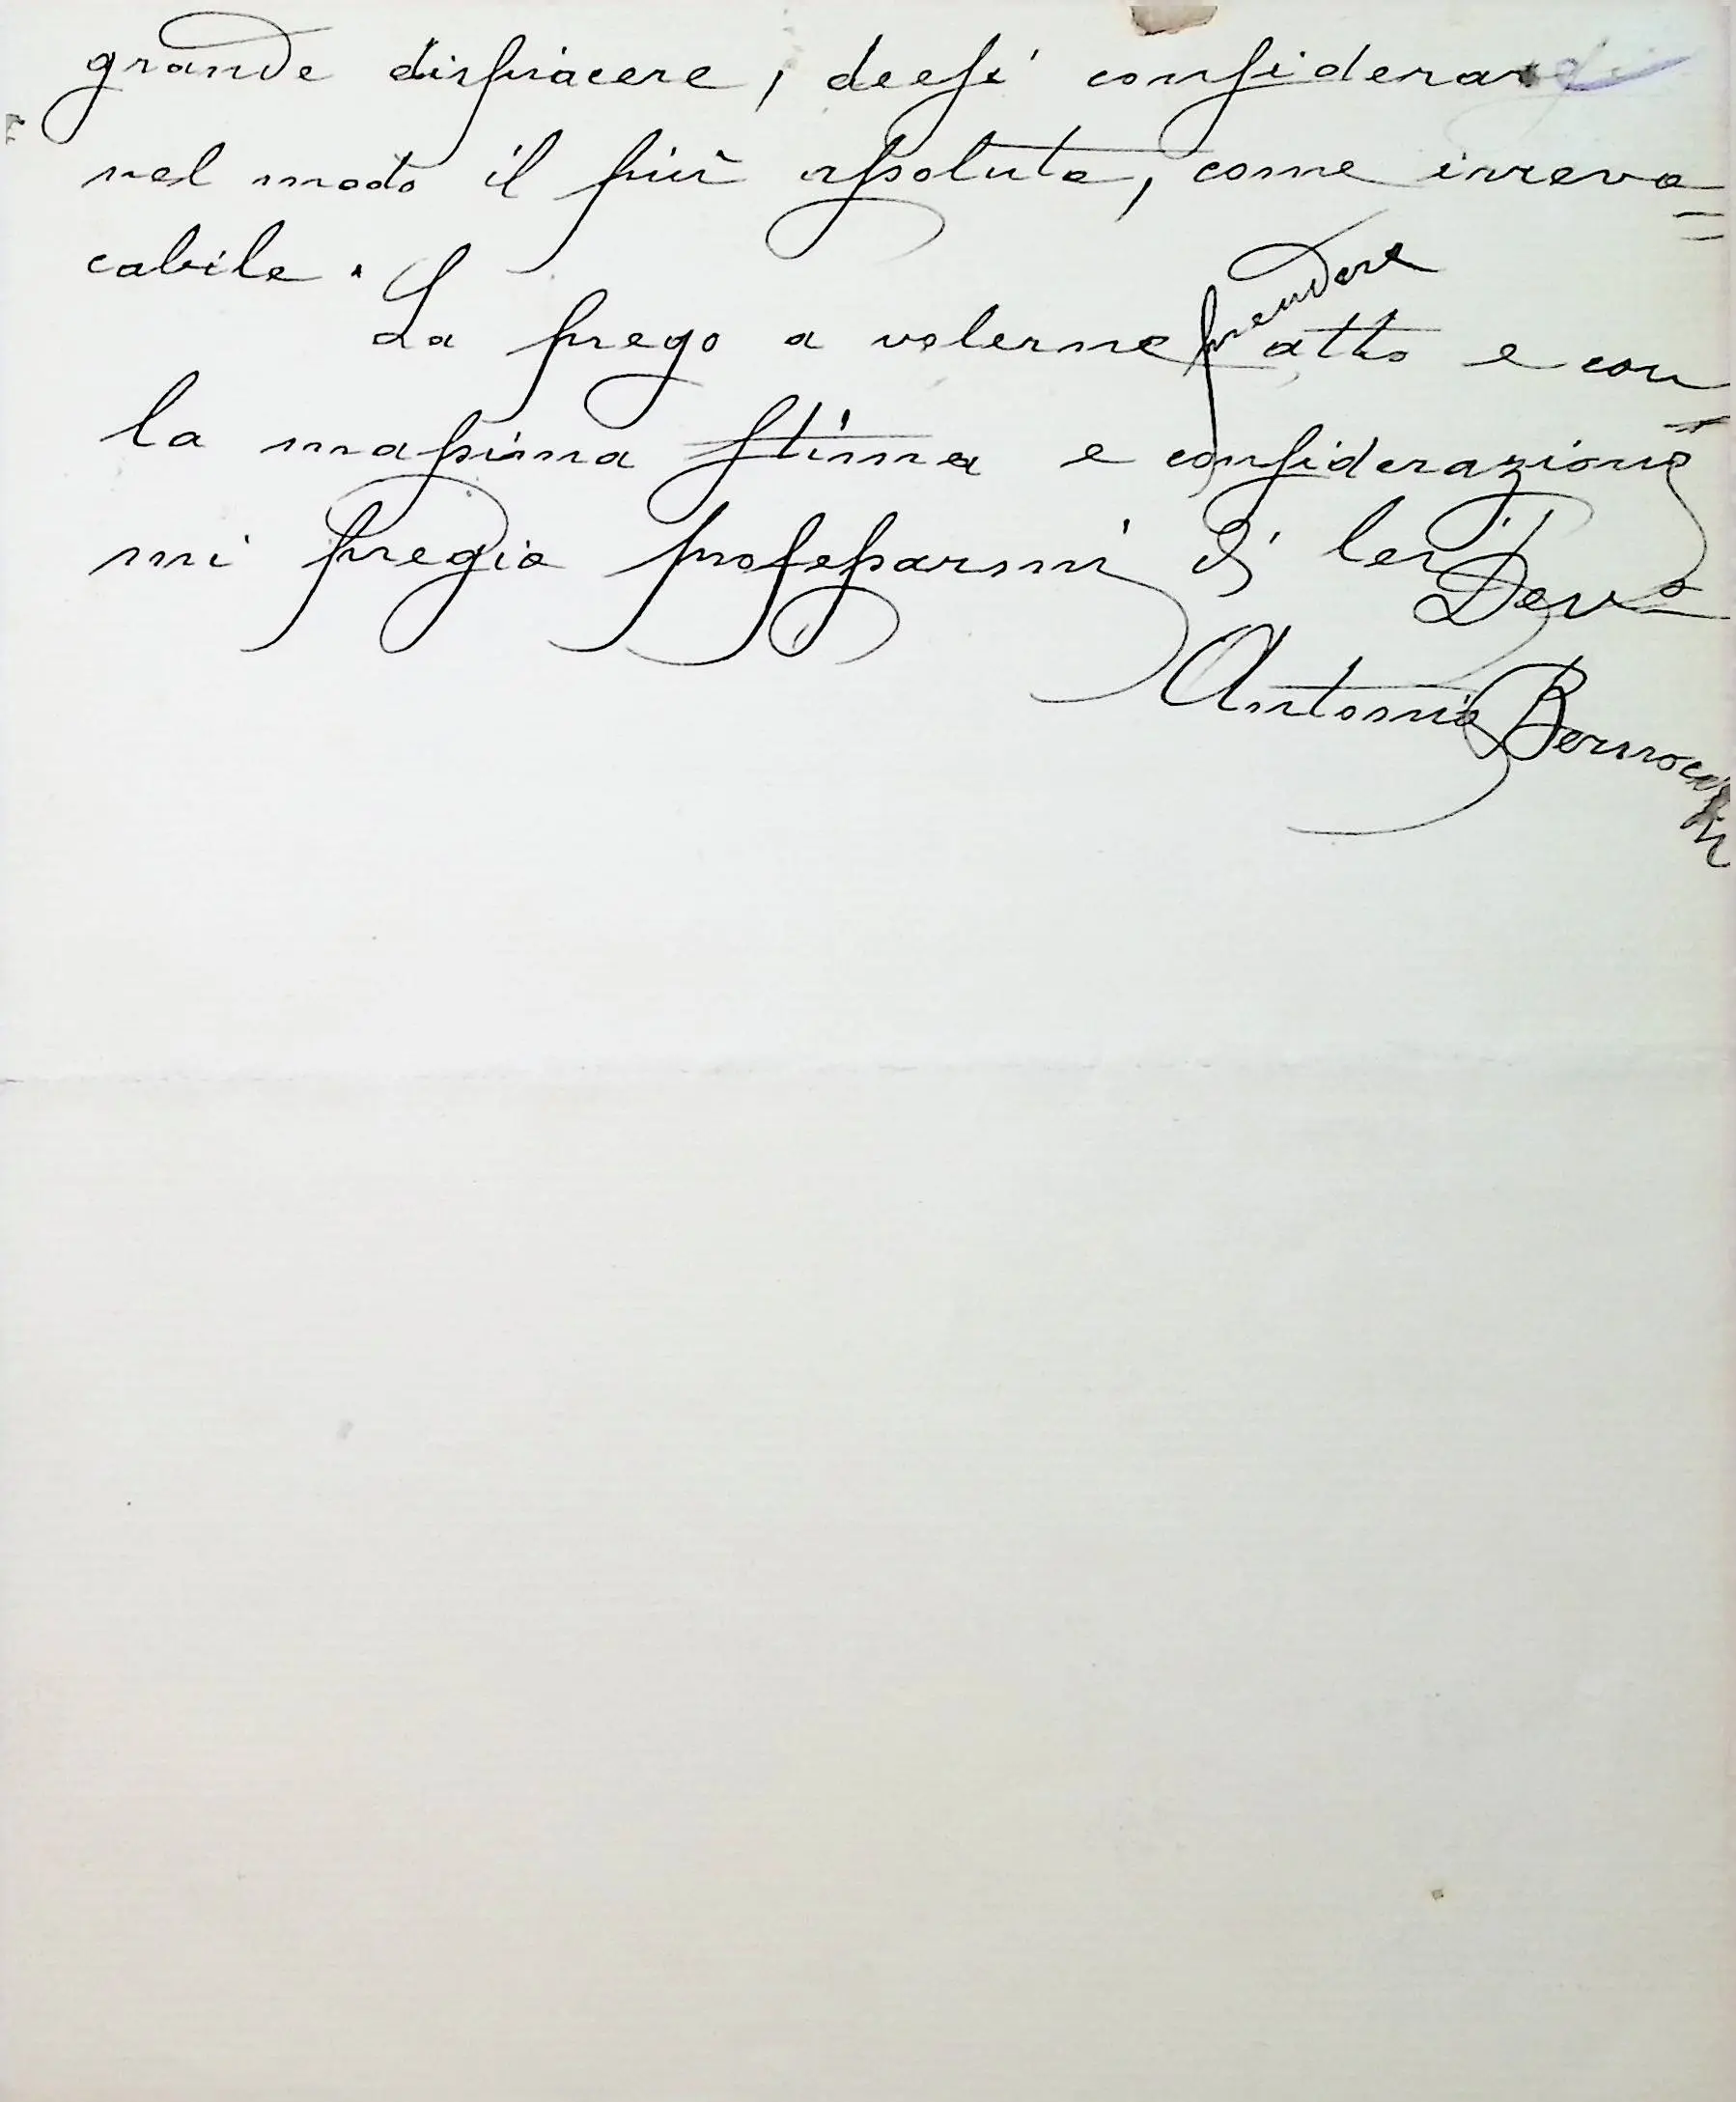 grande dispiacere, deesi considerarsi
nel modo il più assoluto, come irrevo=
cabile.
La prego a volerne prendere atto e con
la massima stima e considerazione
mi pregio professarmi di lei Devo
Antonio Bernocchi